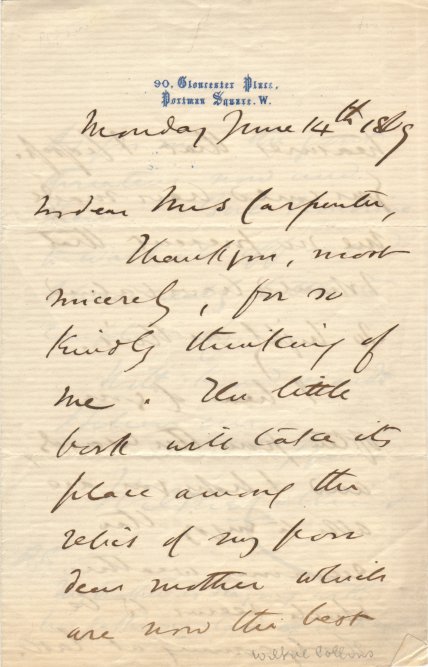 90, Gloucester Place,
Portman Square. W.
Monday June 14th 1869
My dear Mrs Carpenter,
Thank you, most
sincerely, for so
kindly thinking of
me. The little
book will take its
place among the
relics of my poor
dear mother which
are now the best
Wilkie Collins